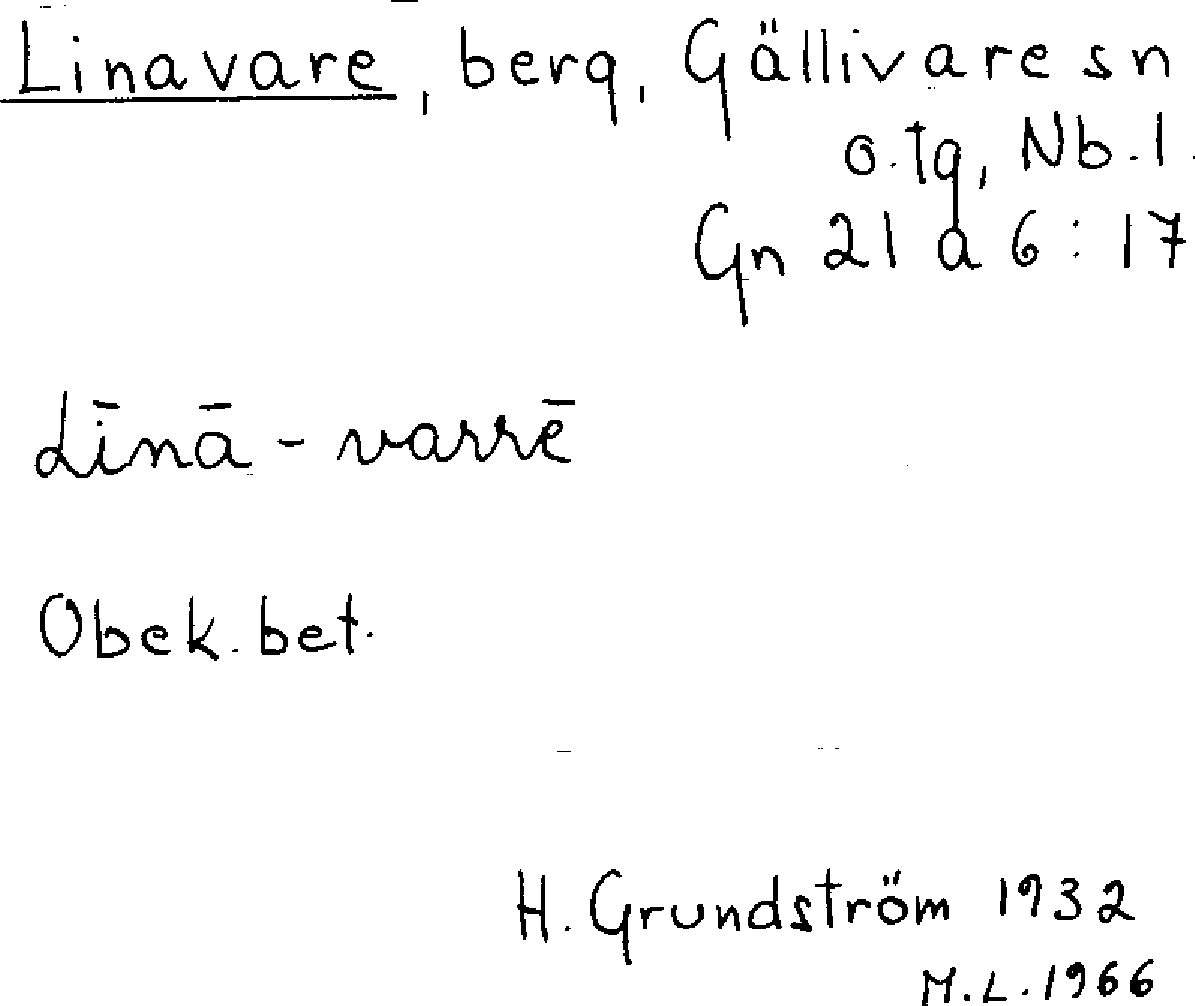 Linavare, berg, Gällivare sn
o. tg, Nb. l.
Gn 21 a 6:17
Līnā-varrē
Obek. bet.
H. Grundström 1932
M.L. 1966